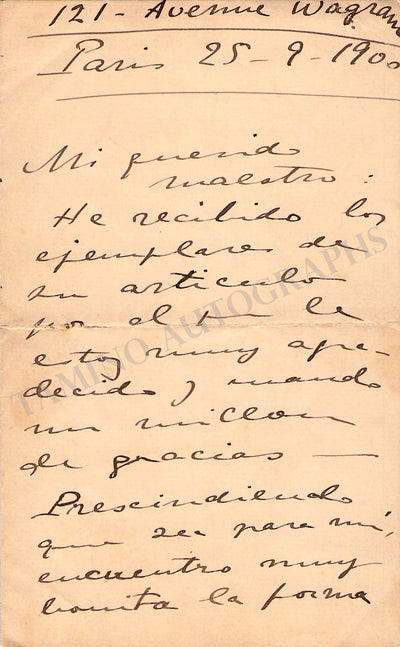 121 - Avenue Wagram
Paris 25 - 9 - 1900
Mi querido
maestro :
He recibido los
ejemplares de
su articulo
por el que le
estoy muy agra-
decido y mando
un millon
de gracias —
Prescindiendo
que sea para mi,
encuentro muy
bonita la forma
TAMINO AUTOGRAPHS